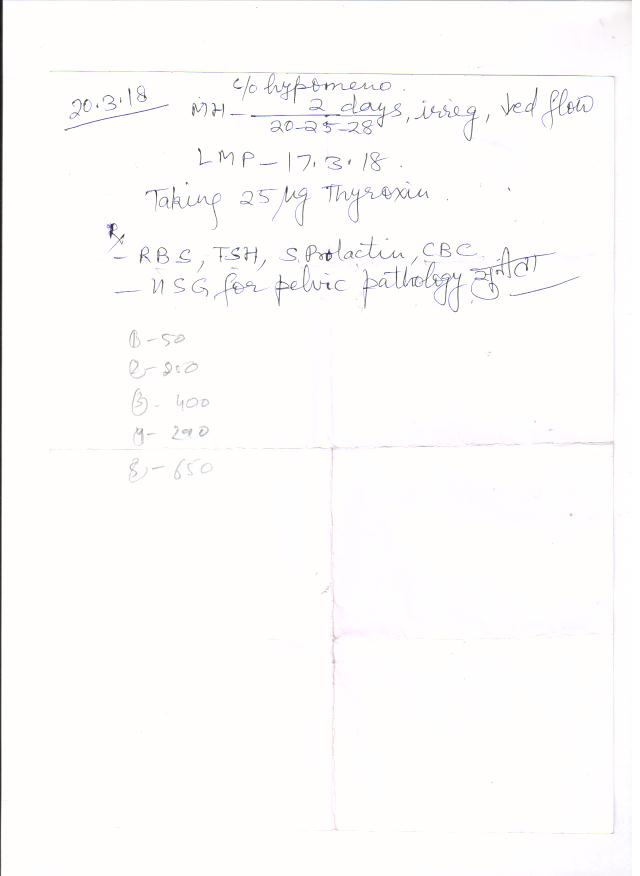 c/o hypomeno.
20.3.18
MH - 2 days, irreg, ↓ed flow
20-25-28
LMP - 17.3.18.
Taking 25 µg Thyroxin.
Rx
- RBS, TSH, S. Prolactin, CBC.
- USG for pelvic pathology सुनीता
① - 50
② - 200
③ - 400
4 - 290
⑤ - 650